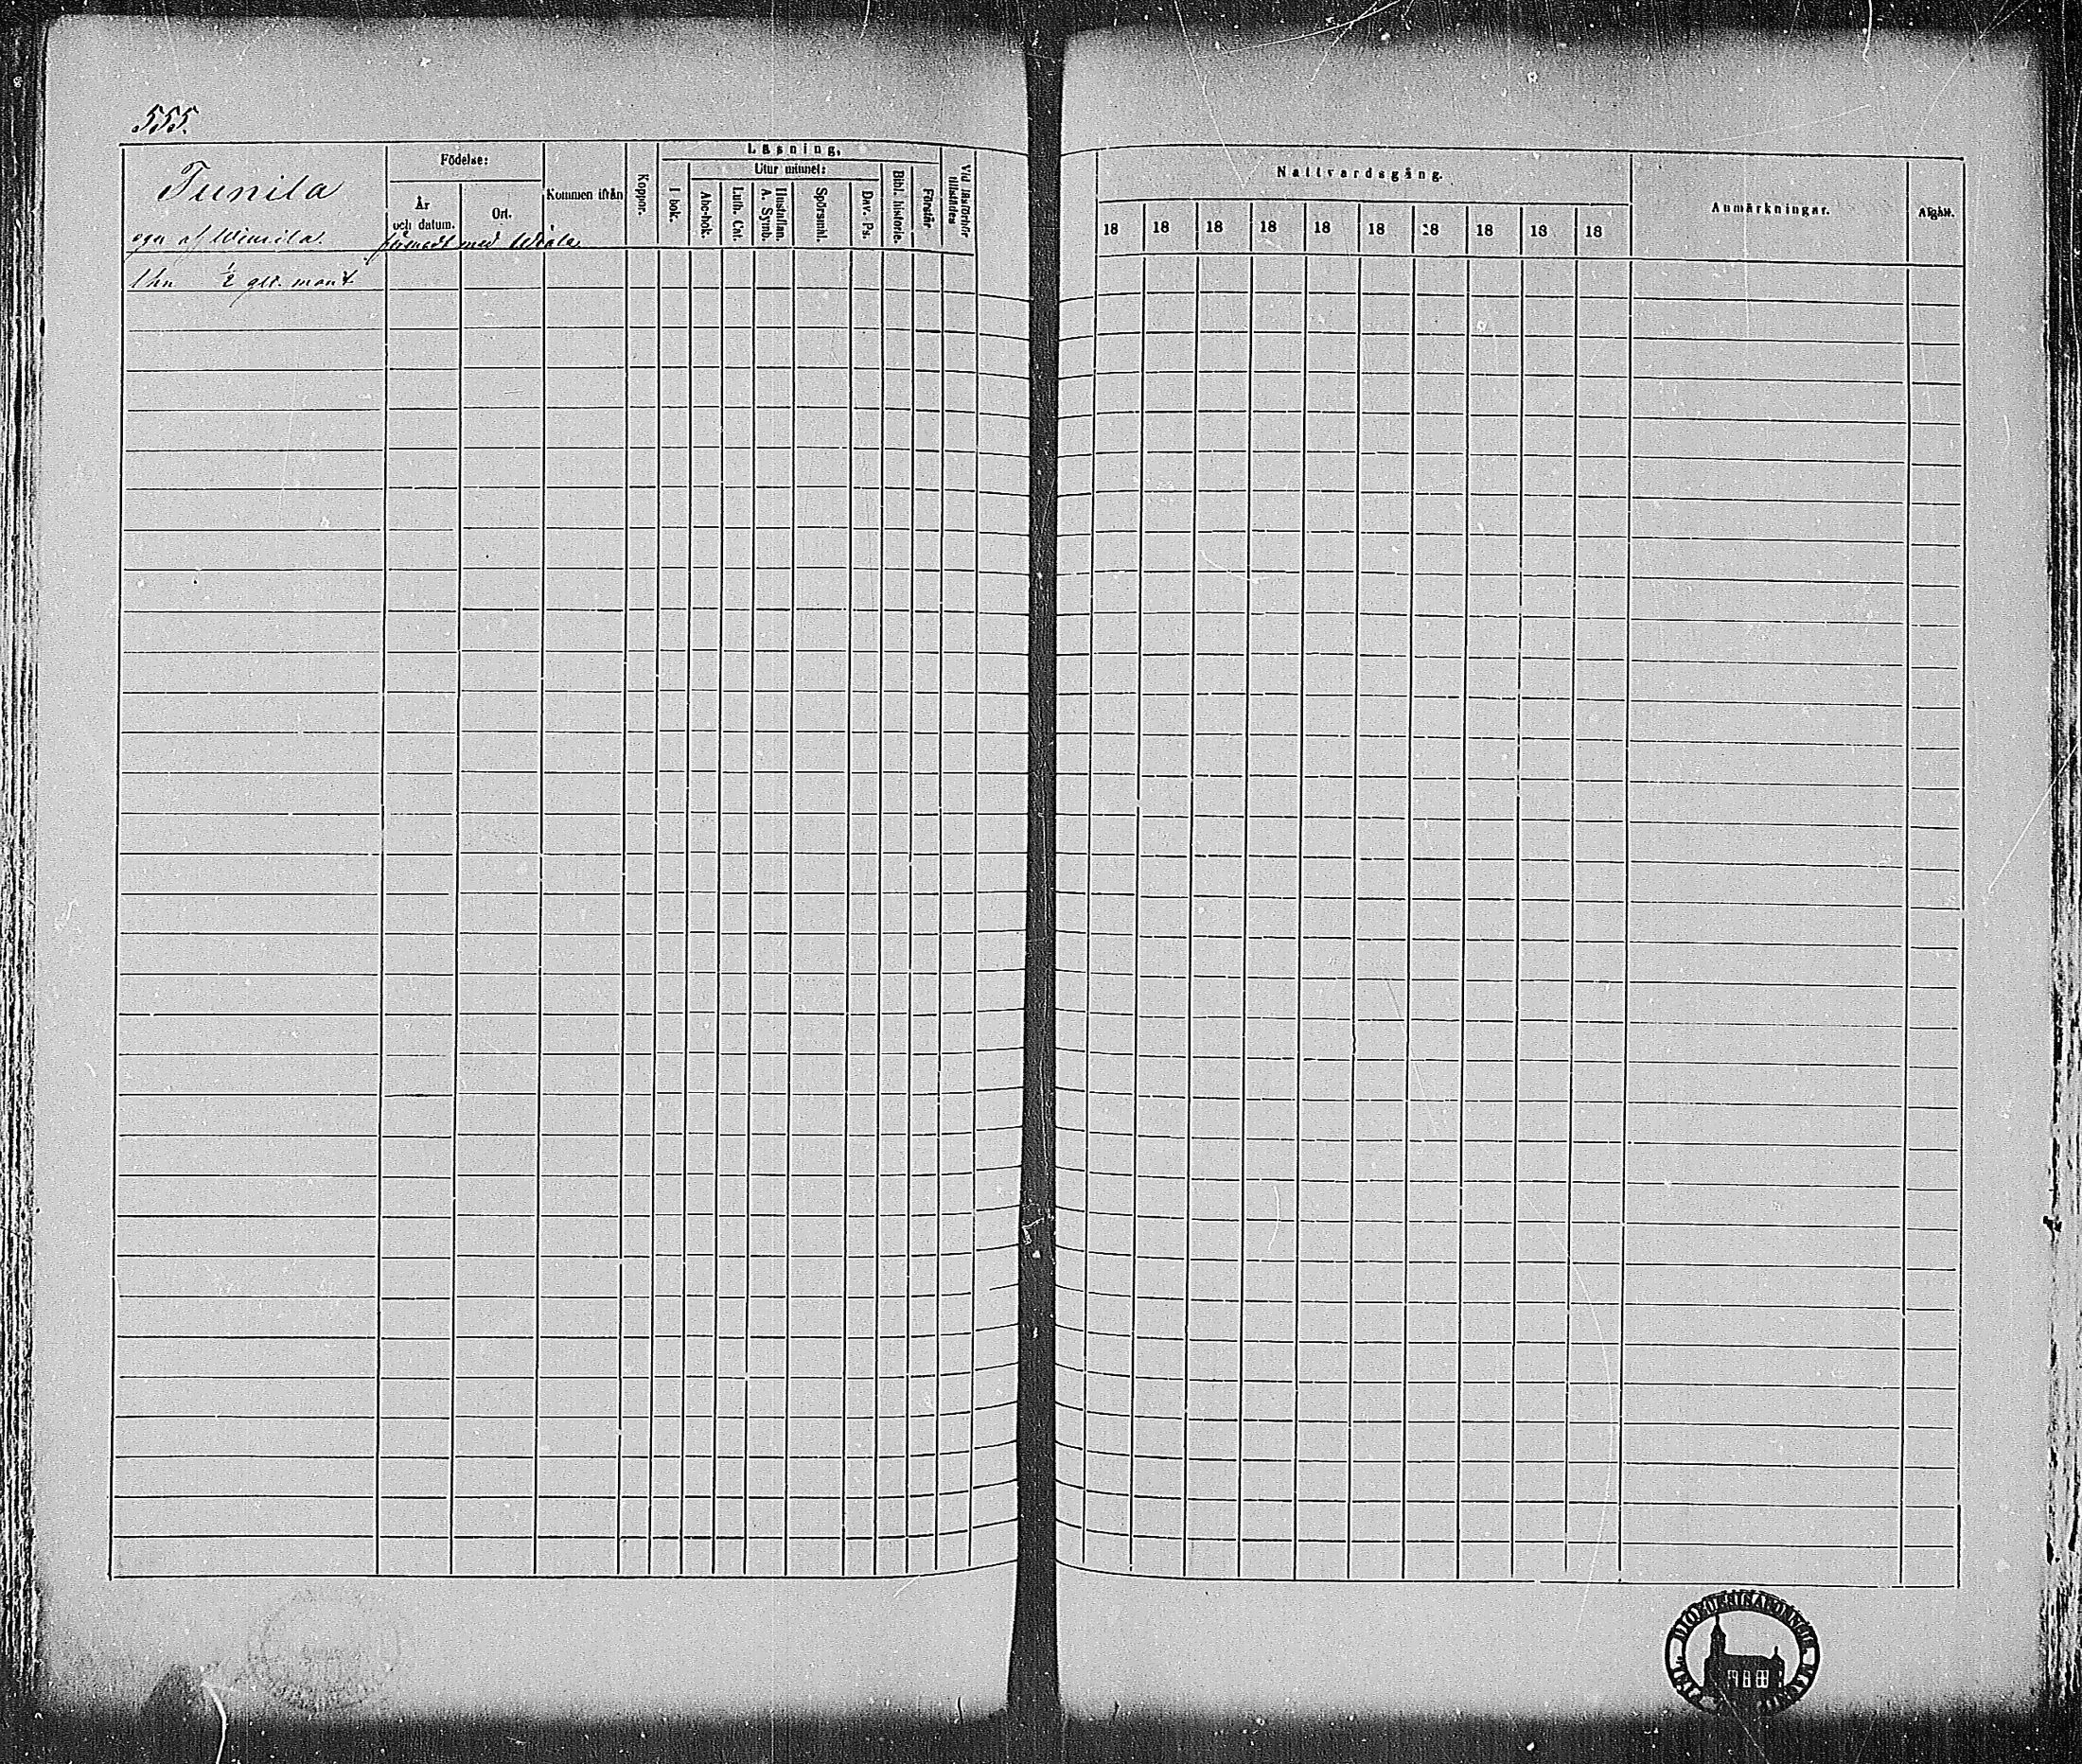 555.
Tunila
ega af Wimila. förenadt med Wiala
1 hn ½ gl. mant
Födelse:
År och datum.
Ort.
Kommen ifrån
Koppor.
Läsning,
I bok.
Utur minnet:
Abc-bok.
Luth. Cat.
Hustaflan. A. Symb.
Spörsmål.
Dav. Ps.
Bibl. historie.
Förstår.
Vid läsförhör tillstädes
Nattvardsgång.
18 18 18 18 18 18 18 18 18 18
Anmärkningar.
Afgått.